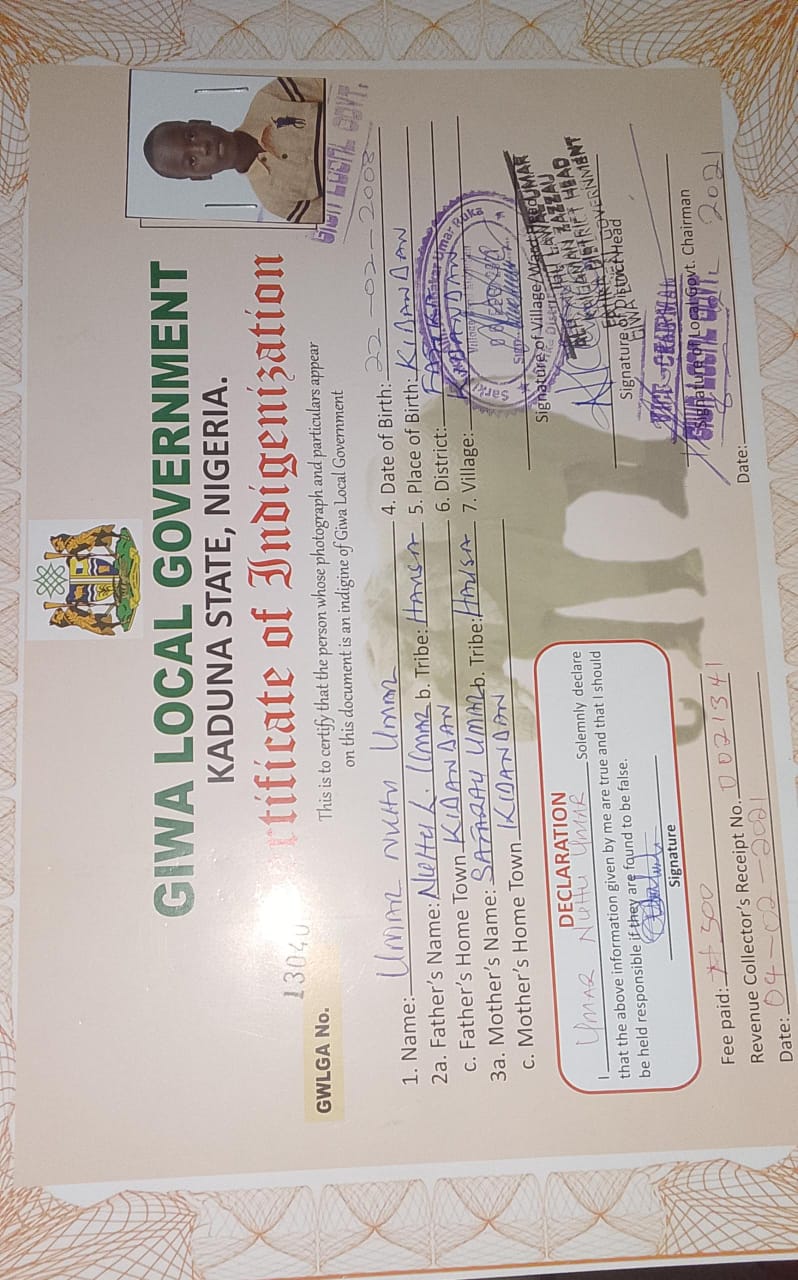 GIWA LOCAL GOVERNMENT
KADUNA STATE, NIGERIA.
rtificate of Indigenization
GWLGA No. 13040
This is to certify that the person whose photograph and particulars appear
on this document is an indigine of Giwa Local Government
LOCAL GOVT.
1. Name: UMAR NUHU UMAR
2a. Father's Name: NUHU L. UMAR b. Tribe: HAUSA
c. Father's Home Town KIDANDAN
3a. Mother's Name: SAFARAU UMAR b. Tribe: HAUSA
c. Mother's Home Town KIDANDAN
4. Date of Birth: 22-02-2008
5. Place of Birth: KIDANDAN
6. District:
7. Village: KIDANDAN
Umar Ruka
Sarki
Signature of Village/Ward Head
UMAR
DISTRICT HEAD
Signature of District Head
Signature of Local Govt. Chairman
Date: 2021
DECLARATION
I UMAR NUHU UMAR Solemnly declare
that the above information given by me are true and that I should
be held responsible if they are found to be false.
Signature
Fee paid: ₦ 500
Revenue Collector's Receipt No. 0021341
Date: 04-02-2021